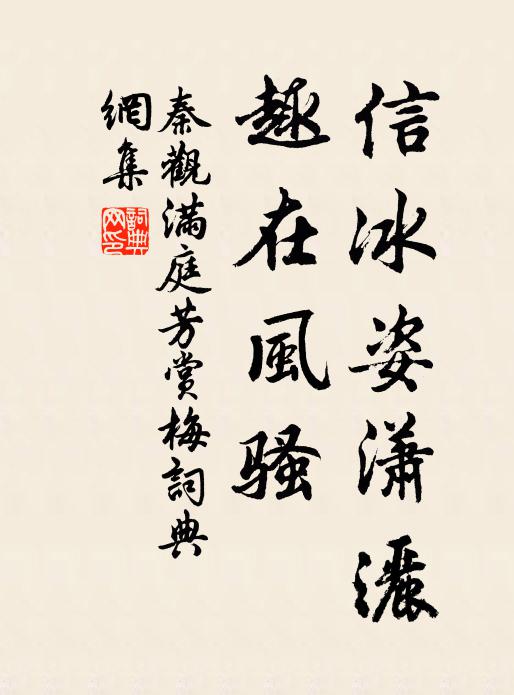 信冰姿瀟灑
趣在風騷
秦觀滿庭芳賞梅詞典
網集
詞典網印